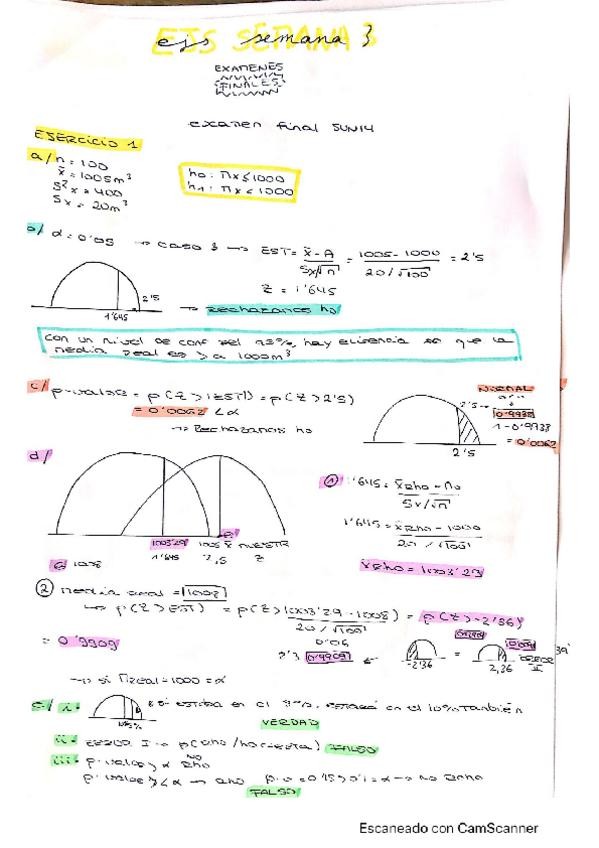 EJS SEMANA 3
ejs semana 3
EXAMENES
FINALES
examen final JUN14
EJERCICIO 1
a/ n = 100
x̄ = 1005m³
S²x = 400
Sx = 20m³
h0: Πx ≤ 1000
h1: Πx < 1000
α = 0'05 → caso 3 → EST = x̄ - A / Sx/√n = 1005 - 1000 / 20/√100 = 2'5
Z = 1'645
2'5
1'645
→ Rechazamos ho
con un nivel de conf del 95%, hay evidencia en que la
media real es > a 1000m³
c/ p-valor = p(Z > |EST|) = p(Z > 2'5)
= 0'0062 < α
→ Rechazamos ho
NORMAL
2'5 → 0'9938
1 - 0'9938
= 0'0062
2'5
d/
1003'29 1005 x̄ MUESTR
1'645 2,5 Z
1008
① 1'645 = x̄Rho - Πo / Sx/√n
1'645 = x̄Rho - 1000 / 20/√100
x̄Rho = 1003'29
② media real = 1008
→ p(Z > EST) = p(Z > 1003'29 - 1008 / 20/√100) = p(Z > -2'36)
= 0'9909
0'06
2'3 0'9909 ←
-2'36 = 2,36
→ si Πreal = 1000 = α
e/ i = si estaba en el 5%, estará en el 10% también
VERDAD
ii = ERROR I → p(Rho/ho cierta) FALSO
iii = p-valor > α no Rho
p-valor < α → Rho p.v = 0'15 > 0'1 = α → no Rho
FALSO
Escaneado con CamScanner